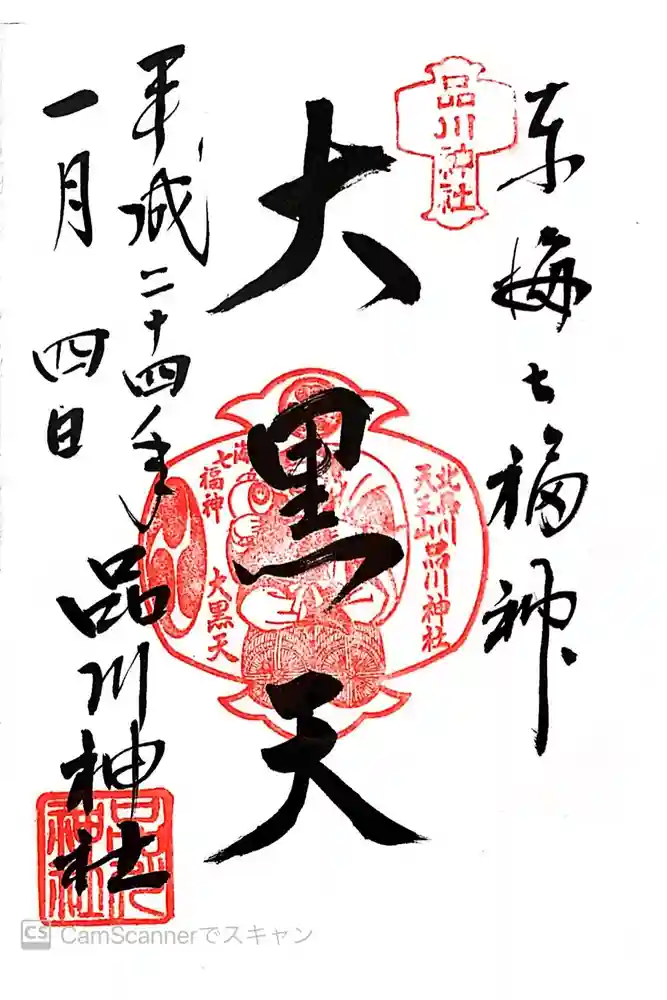 東海七福神
品川神社
大黒天
北品川
天王山品川神社
七福神
大黒天
平成二十四年
一月四日
品川神社
品川神社
CS CamScannerでスキャン